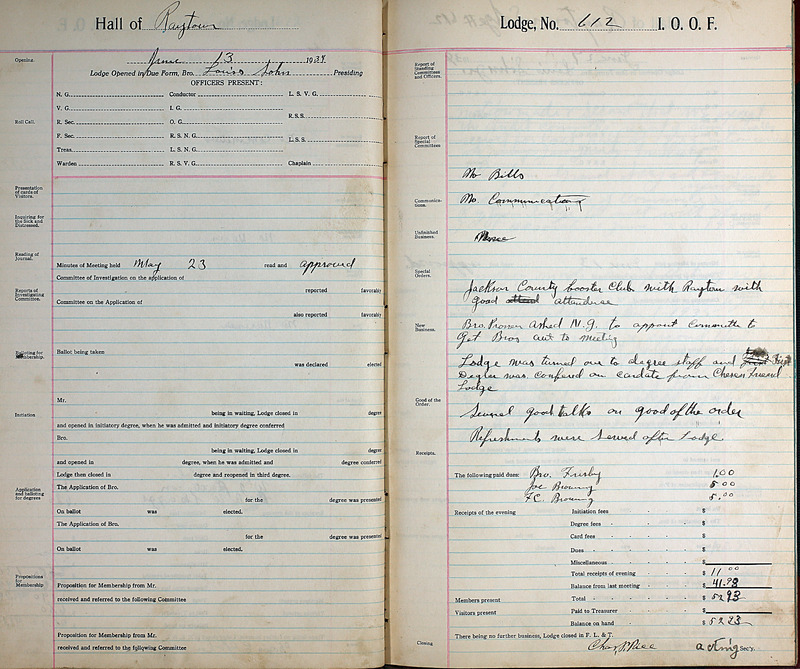 Hall of Raytown
Opening.
June 13 1934
Lodge Opened in Due Form, Bro. Louis John Presiding
OFFICERS PRESENT:
Roll Call.
N. G. Conductor L. S. V. G.
V. G. I. G. R.S.S.
R. Sec. O. G.
F. Sec. R. S. N. G. L.S.S.
Treas. L. S. N. G.
Warden R. S. V. G. Chaplain
Presentation of cards of Visitors.
Inquiring for the Sick and Distressed.
Reading of Journal.
Minutes of Meeting held May 23 read and approved
Committee of Investigation on the application of
reported favorably
Reports of Investigating Committee.
Committee on the Application of
also reported favorably
Balloting for Membership.
Ballot being taken
was declared elected
Mr.
Initiation.
being in waiting, Lodge closed in degree
and opened in initiatory degree, when he was admitted and initiatory degree conferred
Bro.
being in waiting, Lodge closed in degree
and opened in degree, when he was admitted and degree conferred
Lodge then closed in degree and reopened in third degree.
Application and balloting for degrees
The Application of Bro.
for the degree was presented
On ballot was elected.
The Application of Bro.
for the degree was presented
On ballot was elected.
Propositions for Membership
Proposition for Membership from Mr.
received and referred to the following Committee
Proposition for Membership from Mr.
received and referred to the following Committee
Lodge, No. 612 I. O. O. F.
Report of Standing Committees and Officers.
Report of Special Committees
No Bills
Communications.
No. Communications
Unfinished Business.
None
Special Orders.
Jackson County booster Club with Raytown with
good attendence
New Business.
Bro. asked N.G. to appoint Committe to
Get Bros out to meeting
Lodge was turned over to degree staff and First
Degree was confered on candate from Friend
Lodge
Good of the Order.
Several good talks on good of the order
Refreshments were served after Lodge
Receipts.
The following paid dues: Bro. Frisby 1.00
Joe Browning 5.00
F.C. Browning 5.00
Receipts of the evening Initiation fees $
Degree fees $
Card fees $
Dues $
Miscellaneous $
Total receipts of evening $ 11.00
Balance from last meeting $ 41.93
Members present Total $ 52.93
Visitors present Paid to Treasurer $
Balance on hand $ 52.93
Closing
There being no further business, Lodge closed in F. L. & T.
Chas. P. Rice acting Sec'y.